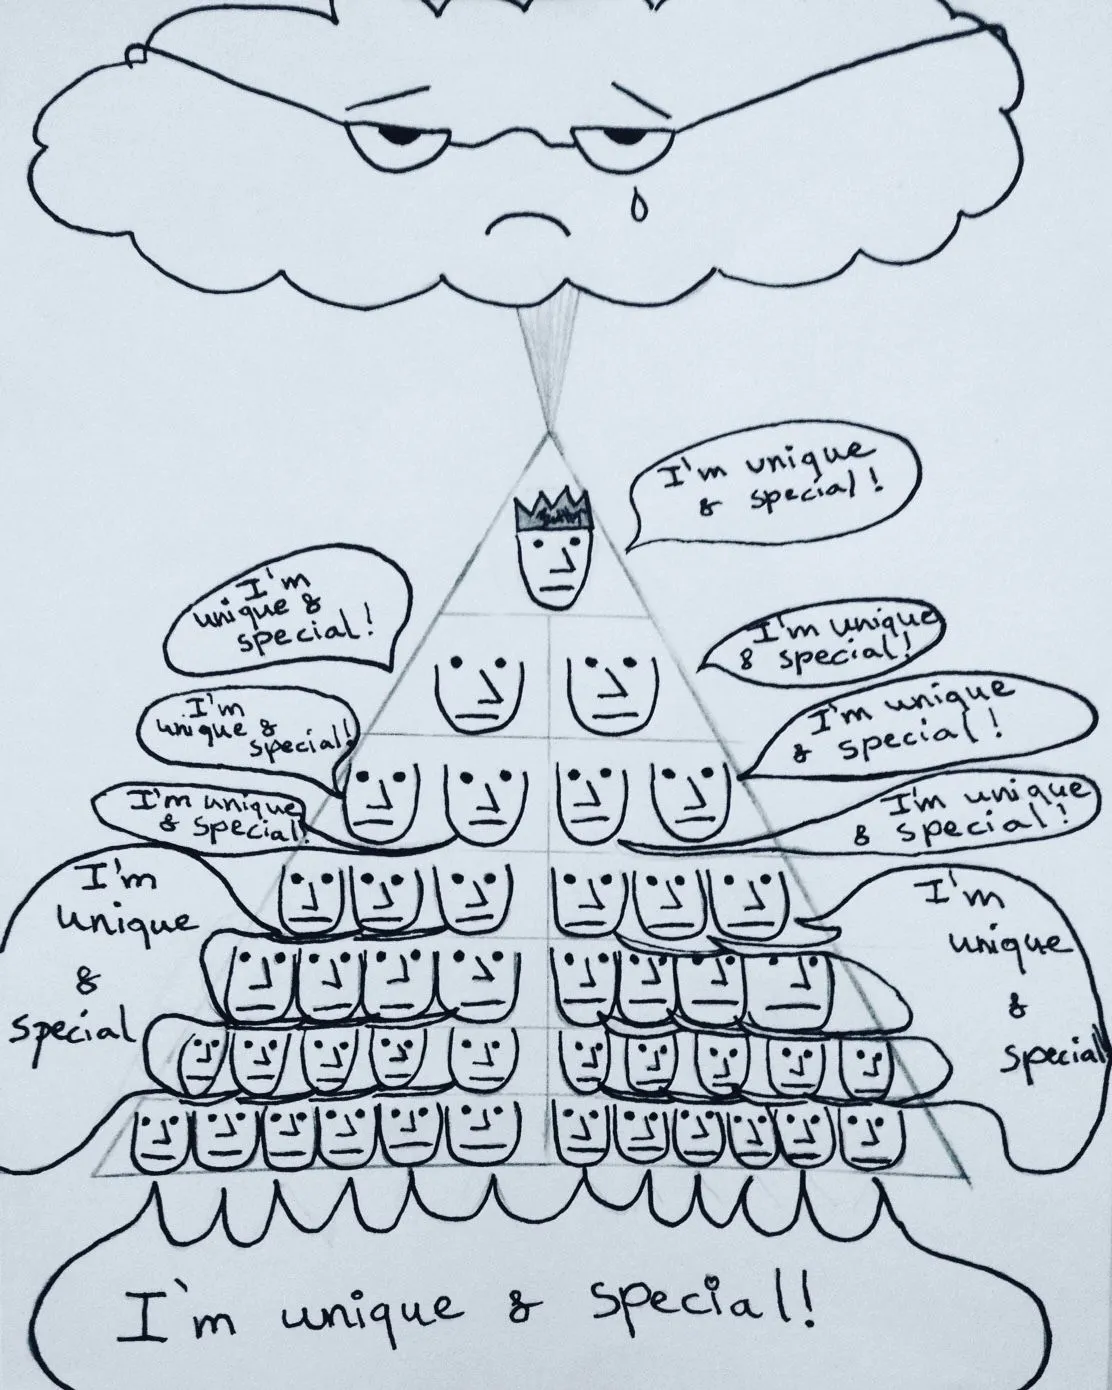 I'm unique
& special!
I'm
unique &
special!
I'm unique
& special!
I'm
unique &
special!
I'm unique
& special!
I'm unique
& special!
I'm unique
& special!
I'm
unique
&
special
I'm
unique
&
special
I'm unique & special!